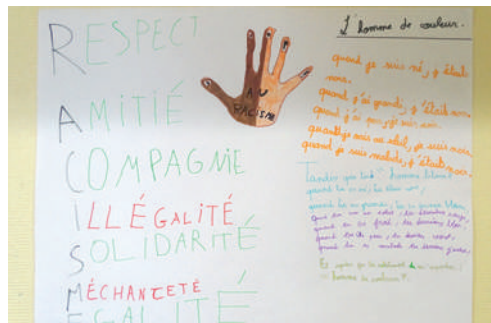 RESPECT
AMITIÉ
COMPAGNIE
ILLÉGALITÉ
SOLIDARITÉ
MÉCHANCETÉ
EGALITÉ
AU
RACISME
L'homme de couleur.
quand je suis né, j'étais
noir.
quand j'ai grandi, j'étais noir.
quand j'ai peur, je suis noir.
quand je suis au soleil, je suis noir,
quand je suis malade, j'étais noir.
Tandis que toi homme blanc
quand tu es né, tu étais
quand tu as grandi, tu
quand tu as froid, tu deviens bleu,
quand tu as peur, tu deviens
quand tu es malade tu deviens
homme de couleur